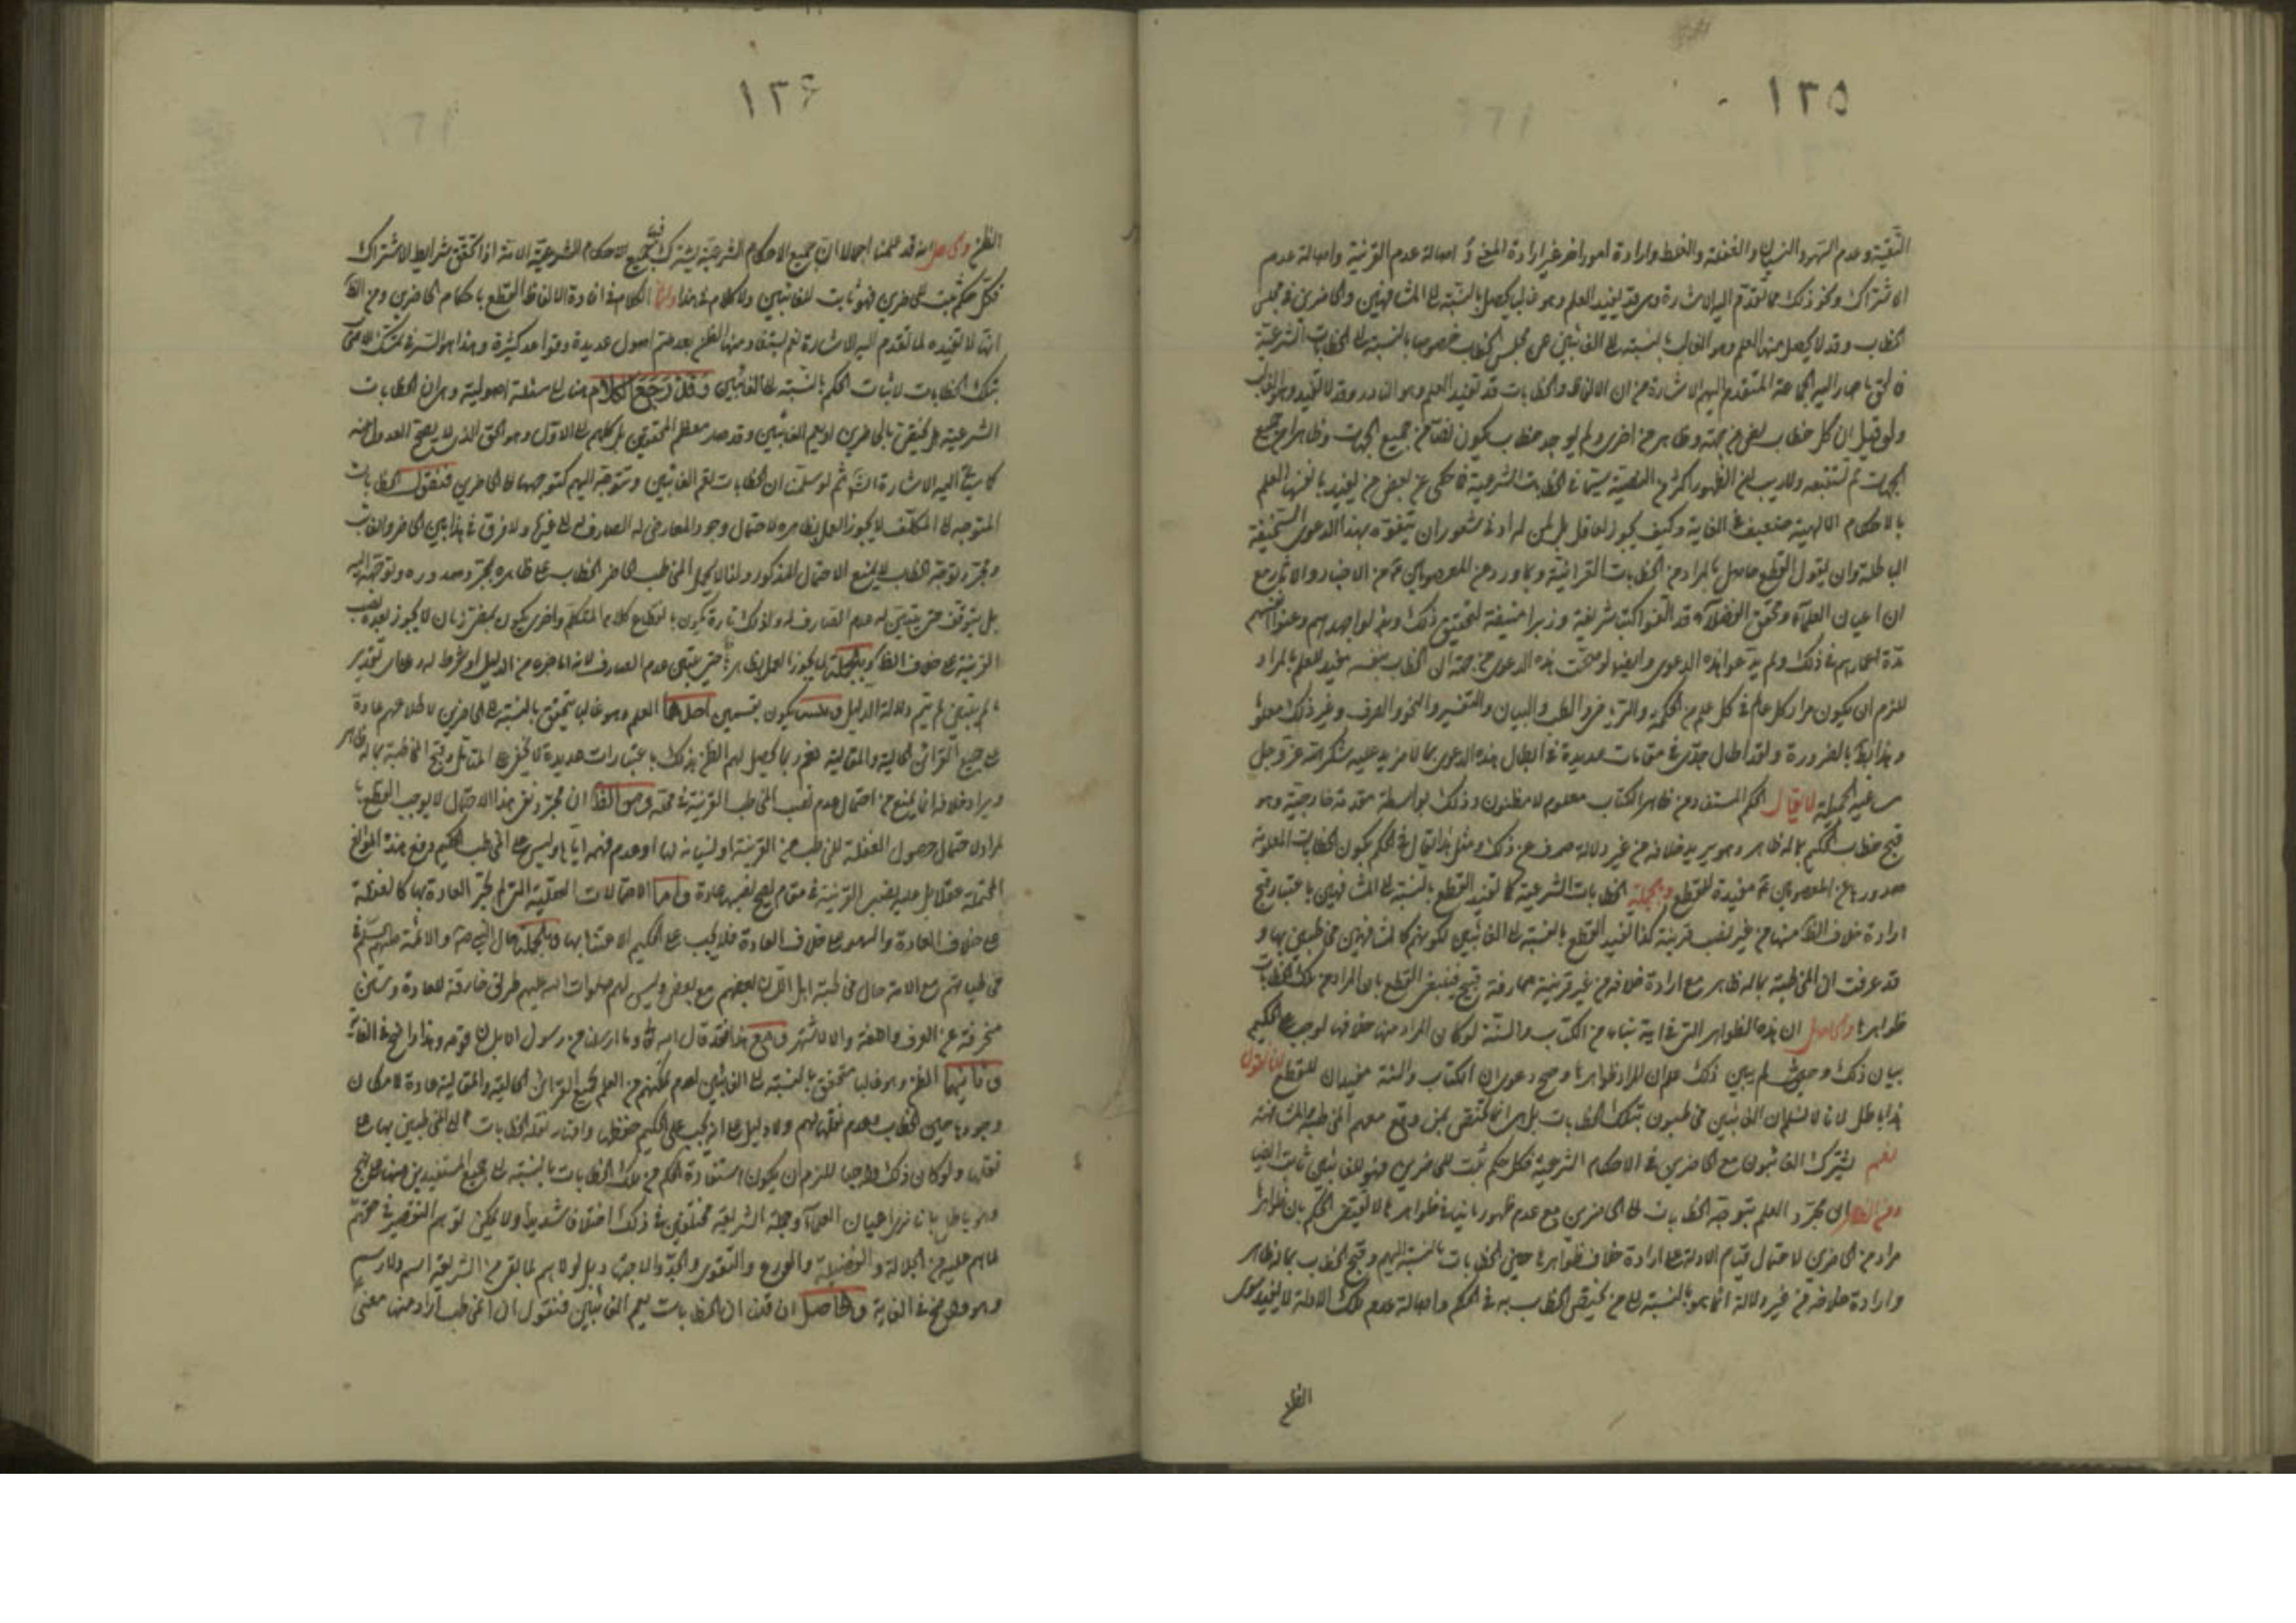 ١٢٥
التقية وعدم السهو والنسيان والغفلة والغلط وارادة امور اخر غير ارادة المعنى و اصالة عدم القرينة واصالة عدم
الاشتراك ونحو ذلك مما تقدم اليه الاشارة وهى قد يفيد العلم وهو غالبا يحصل بالنسبة الى المشافهين والحاضرين فى مجلس
الخطاب وقد لا يحصل منها العلم وهو الغالب بالنسبة الى الغائبين عن مجلس الخطاب خصوصا بالنسبة الى الخطابات الشرعية
فالحق ما صار اليه الجماعة المتقدم اليهم الاشارة من ان الالفاظ والخطابات قد تفيد العلم وهو النادر وقد لا تفيد وهو الغالب
ولو قيل ان كل خطاب نص من جهة وظاهر من اخرى ولم يوجد خطاب يكون نصا من جميع الجهات وظاهرا من جميع
الجهات لم نستبعده ولا ريب ان الظهور اكثر من النصية سيما فى الخطابات الشرعية فما حكى عن بعض من يفيد بانفسها العلم
بالاحكام الالهية ضعيف فى الغاية وكيف يجوز لعاقل بل لمن له ادنى شعور ان يتفوه بهذا الدعوى السخيفة
الباطلة وان يقول القطع حاصل بالمراد من الخطابات القرانية وبما ورد عن المعصومين من الاخبار والاثار مع
ان اعيان العلماء ومحقق الفضلاء قد الفوا كتبا شريفة وزبرا منيفة لتحقيق ذلك وبذلوا جهدهم وعنوا انفسهم
مدة اعمارهم فى ذلك ولم يدعوا هذه الدعوى وايضا لو صحت هذه الدعوى من جهة ان الخطاب بنفسه مفيد للعلم بالمراد
للزم ان يكون مراد كل عالم فى كل علم من الحكمة والرياضى والطب والبيان والتفسير والنحو والصرف وغير ذلك معلوما
وهذا بط بالضرورة ولقد اطال جدى فى مقامات عديدة فى ابطال هذه الدعوى بما لا مزيد عليه شكر الله عز وجل
مساعيه الجميلة لا يقال الحكم المستفاد من ظاهر الكتاب معلوم لا مظنون وذلك بواسطة مقدمة خارجية وهو
قبح خطاب الحكيم بما له ظاهر وهو يريد خلافه من غير دلالة صرف عن ذلك ومثل هذا يقال فى الحكم بكون الخطابات المعلومة
صدورها عن المعصومين مفيدة للقطع وبالجملة الخطابات الشرعية كما تفيد القطع بالنسبة الى المشافهين باعتبار قبح
ارادة خلاف الظ منها من غير نصب قرينة كذا تفيد القطع بالنسبة الى الغائبين لكونهم كالمشافهين مخاطبين بها و
قد عرفت ان المخاطبة بما له ظاهر مع ارادة خلافه من غير قرينة صارفة قبيح فينبغى القطع بان المراد من تلك الخطابات
ظواهرها والحاصل ان هذه الظواهر التى فى ايدينا من الكتاب والسنة لو كان المراد منها خلافها لوجب على الحكيم
بيان ذلك وحيث لم يبين ذلك علم ان المراد ظواهرها وصح دعوى ان الكتاب والسنة مفيدان للقطع لانا نقول
هذا باطل لانا لا نسلم ان الغائبين مخاطبون بتلك الخطابات بل هى انما تختص بمن وقع معهم المخاطبة المشافهة
نعم يشترك الغائبون مع الحاضرين فى الاحكام الشرعية فكل حكم ثبت للحاضرين فهو للغائبين ثابت ايضا
ومن الظاهر ان مجرد العلم بتوجه الخطابات الى الحاضرين مع عدم ظهور ما ينافى ظواهرها لا يقتضى الحكم بان ظواهرها
مراد من الحاضرين لاحتمال قيام الادلة على ارادة خلاف ظواهرها حين الخطابات بالنسبة اليهم وقبح الخطاب بما له ظاهر
وارادة خلافه من غير دلالة انما هو بالنسبة الى من يختص الخطاب به فى الحكم واصالة عدم تلك الادلة لا يفيد سوى
الظن
١٢٦
الظن والحاصل انه قد علمنا اجمالا ان جميع الاحكام الشرعية يشترك فيه جميع الاحكام الشرعية الامة اذا تحقق شرايط الاشتراك
فكل حكم ثبت للحاضرين فهو ثابت للغائبين ولا كلام فى هذا وانما الكلام فى افادة الالفاظ القطع باحكام الحاضرين ومن الظ
انها لا تفيده لما تقدم اليه الاشارة نعم يستفاد منها الظن بعد ضم اصول عديدة وقواعد كثيرة وهذا هو السر فى تمسك الاصحاب
بتلك الخطابات لاثبات الحكم بالنسبة الى الغائبين وقد رجع الكلام هنا الى مسئلة اصولية وهى ان الخطابات
الشرعية هل تختص بالحاضرين او يعم الغائبين وقد صار معظم المحققين بل كلهم الى الاول وهو الحق الذى لا يصح العدول عنه
كما سيجئ اليه الاشارة انش ثم لو سلمنا ان الخطابات تعم الغائبين وتتوجه اليهم كتوجهها الى الحاضرين فنقول الخطابات
المتوجهة الى المكلف لا يجوز العمل بظاهره لاحتمال وجود المعارض له الصارف له الى غيره ولا فرق فى هذا بين الحاضر والغائب
ومجرد توجه الخطاب لا يمنع الاحتمال المذكور ولذا لا يحمل المخاطب الحاضر الخطاب على ظاهره بمجرد صدوره وتوجهه اليه
بل يتوقف حتى يتبين له عدم الصارف له وذلك تارة يكون بانقطاع كلام المتكلم واخرى يكون بمضى زمان لا يجوز بعده نصب
القرينة على خلاف الظ وبالجملة لا يجوز العمل بظاهر حتى يتبين عدم الصارف لانه اما جزء من الدليل او شرط له وعلى اى تقدير
ما لم يتبين لم يتم دلالة الدليل يكون بقسمين احدهما العلم وهو غالبا يتحقق بالنسبة الى الحاضرين لاطلاعهم عادة
على جميع القرائن الحالية والمقالية نعم ربما يحصل لهم الظن بذلك باعتبارات عديدة لا تخفى على المتامل وقبح المخاطبة بما له ظاهر
ويراد خلافه انما يمنع من احتمال عدم نصب المخاطب القرينة فى محله ومن الظ ان مجرد نفى هذا الاحتمال لا يوجب القطع با
لمراد لاحتمال حصول الغفلة للمخاطب عن القرينة او لنسيانه لها او عدم فهمه اياها وليس على المخاطب الحكيم دفع هذه الموانع
المحتملة عقلا بل عليه نصب القرينة فى مقام يصح نصبها عادة واما الاحتمالات العقلية التى لم يجر العادة بها كالغفلة
على خلاف العادة والسهو على خلاف العادة فلا يجب على الحكيم الاعتناء بها وبالجملة حال النبى ص والائمة عليهم السلم فى
مخاطباتهم مع الامة حال مخاطبة اهل اللسان بعضهم مع بعض وليس لهم صلوات الله عليهم طرائق خارقة للعادة وسنن
منحرفة عن العرف واللغة والا لاشتهر ومع هذا فقد قال الله تعالى وما ارسلنا من رسول الا بلسان قومه وهذا واضح فى الغاية
وثانيهما الظن وهو غالبا متحقق بالنسبة الى الغائبين لعدم تمكنهم من العلم بجميع القرائن الحالية والمقالية عادة لامكان
وجودها حين الخطاب وعدم نقلها لهم ولا دليل على انه يجب على الحكيم حفظها واقدار نقلة الخطابات الى المخاطبين بها على
نقلها ولو كان ذلك واجبا للزم ان يكون استفادة الحكم من تلك الخطابات بالنسبة الى جميع المستفيدين منها على نهج
وهو باطل بانا نرى اعيان العلماء وجملة الشريعة مختلفين فى ذلك اختلافا شديدا ولا يمكن توهم التقصير فى حقهم
لما هم عليه من الجلالة والفضيلة والورع والتقوى والجد والاجتهاد بل لولاهم لما بقى من الشريعة اسم ولا رسم
وهو واضح فى الغاية والحاصل ان قلنا ان الخطابات يعم الغائبين فنقول ان المخاطب اراد منها معنى